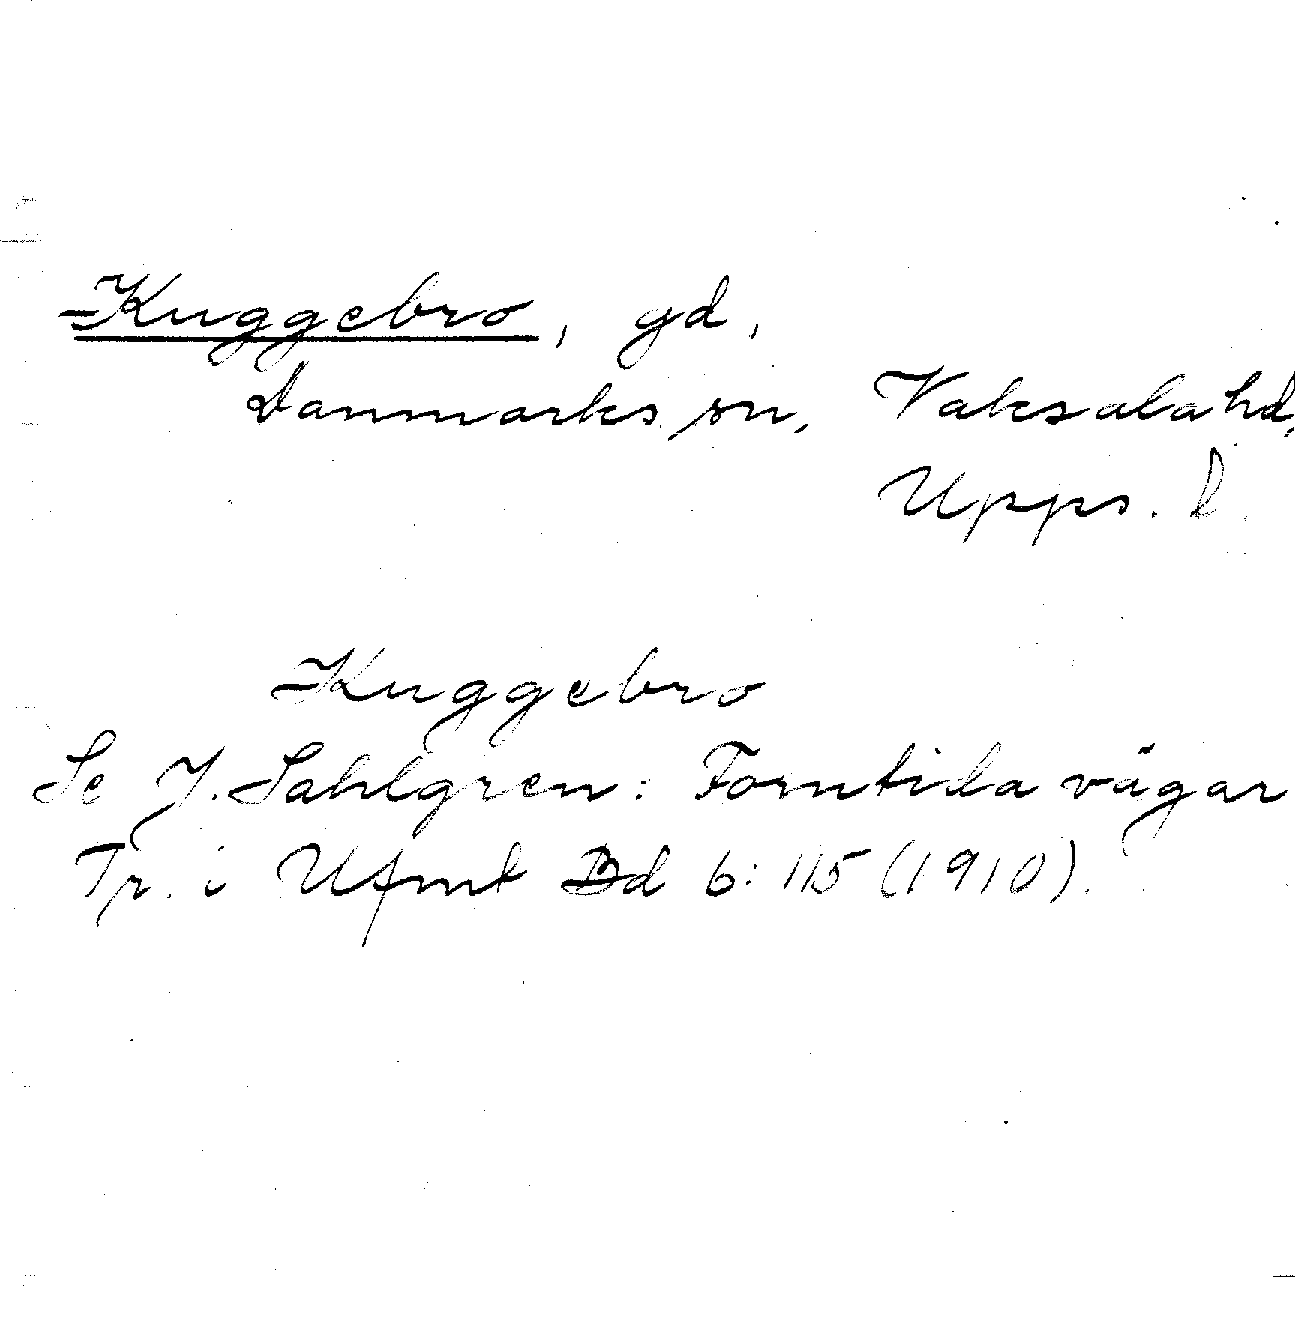 Kuggebro, gd,
Danmarks sn, Vaksala hd,
Upps. l.
Kuggebro
Se J. Sahlgren: Forntida vägar
Tr. i Ufmt Bd 6: 115 (1910).